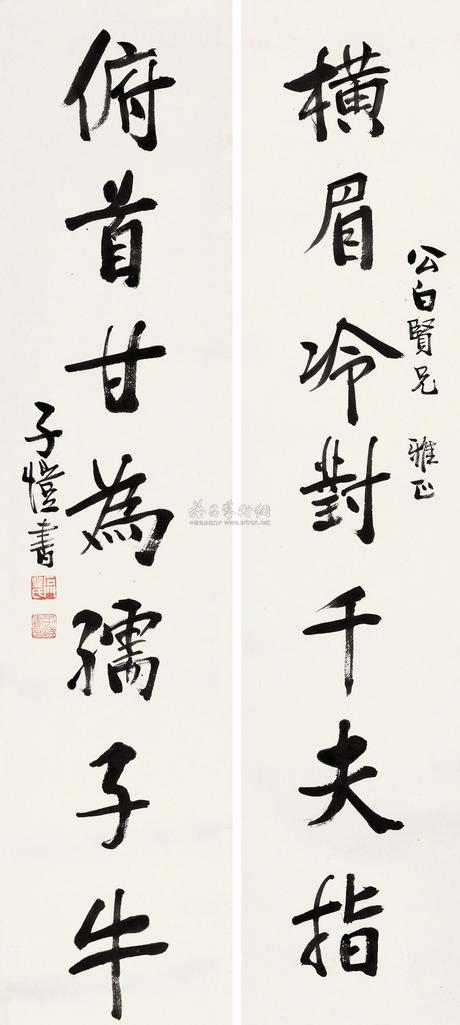 公白賢兄 雅正
橫眉冷對千夫指
俯首甘為孺子牛
子愷書
www.artron.net